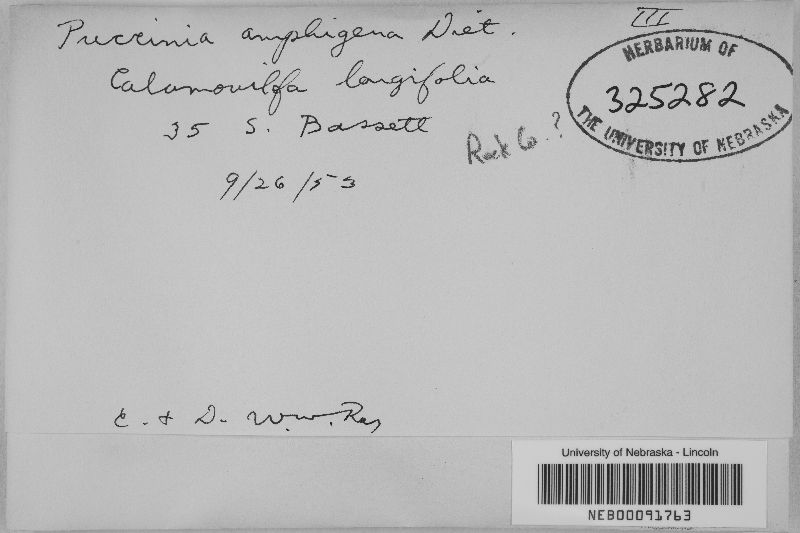 III
Puccinia amphigena Diet.
HERBARIUM OF
325282
THE UNIVERSITY OF NEBRASKA
Calamovilfa longifolia
35 S. Bassett
Rock Co. ?
9/26/53
E. + D. W.W. Ray
University of Nebraska - Lincoln
NEB00091763